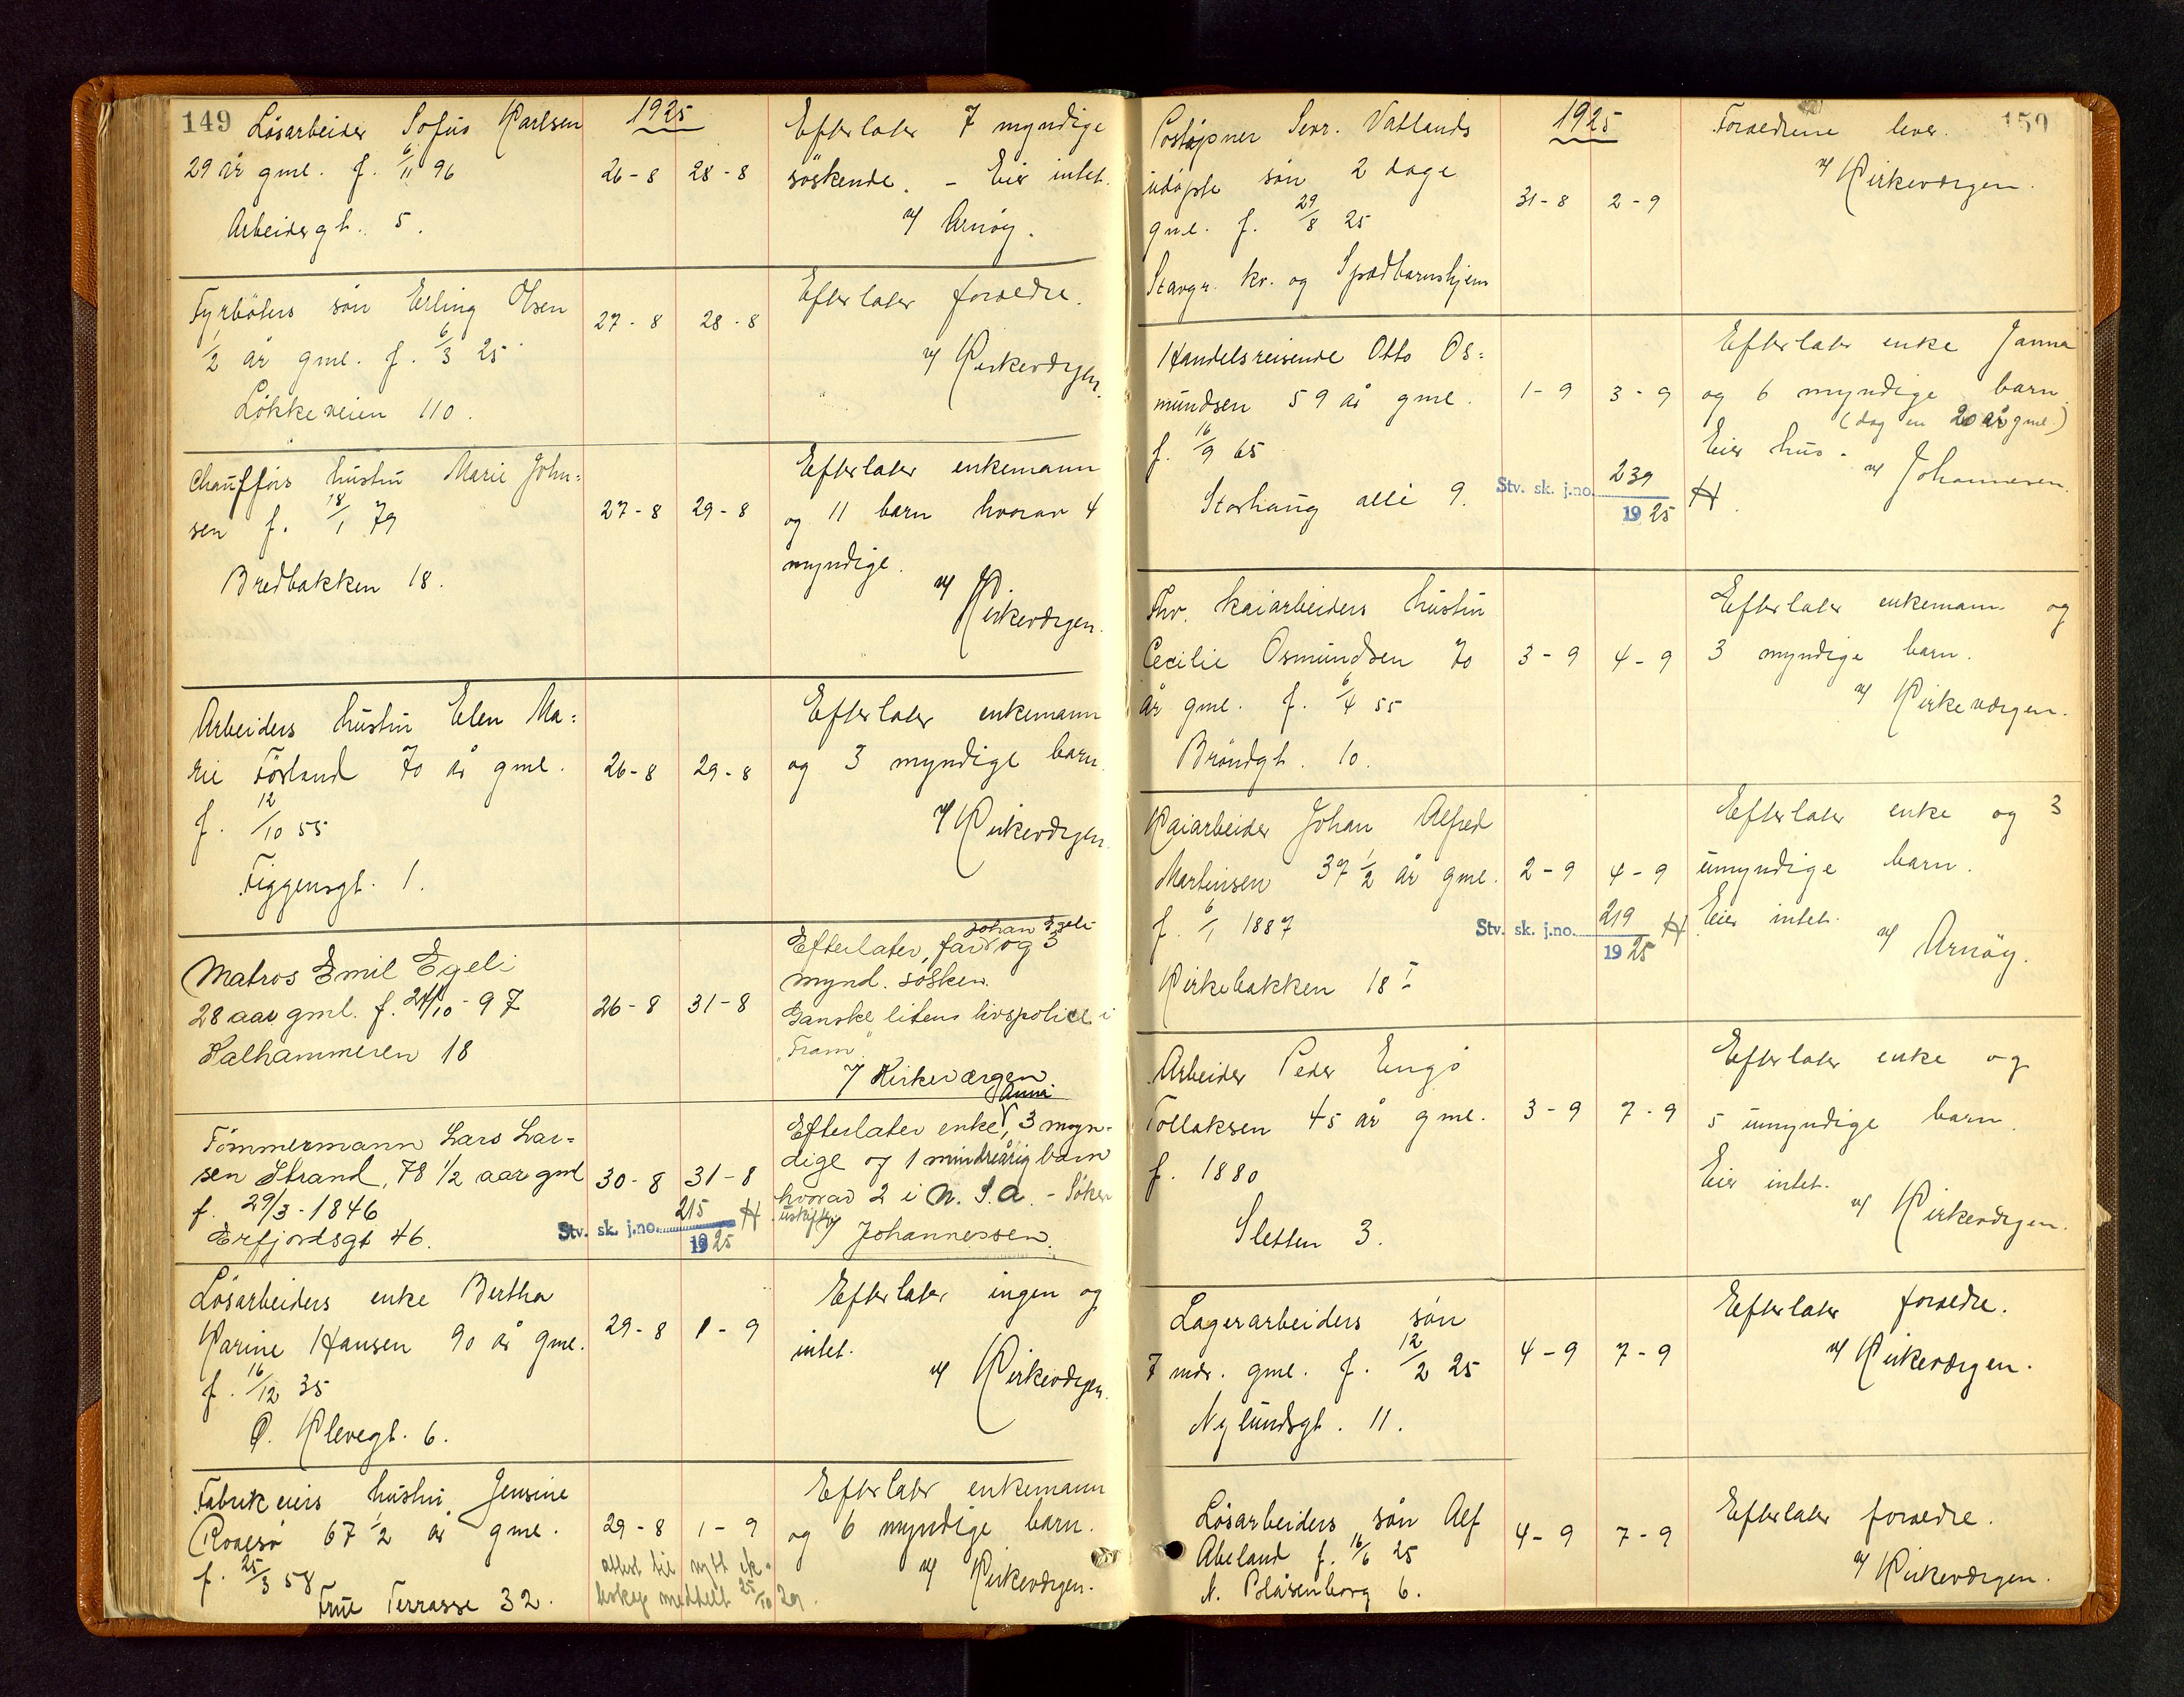 149
Løsarbeider Sofus Karlsen
29 år gml. f. 6/11 96
Arbeidergt. 5.
1925
26-8 28-8
Efterlater 7 myndige
søskende. - Eier intet.
v/ Arnøy.
Fyrbøters søn Erling Olsen
1/2 år gml. f. 6/3 25
Løkkeveien 110.
27-8 28-8
Efterlater forældre.
v/ Kirkeværgen.
Chaufførs hustru Marie John=
sen f. 18/1 79
Bredbakken 18.
27-8 29-8
Efterlater enkemann
og 11 barn hvorav 4
myndige.
v/ Kirkeværgen.
Arbeiders hustru Elen Ma=
rie Førland 70 år gml.
f. 12/10 55
Figgensgt. 1.
26-8 29-8
Efterlater enkemann
og 3 myndige barn.
v/ Kirkeværgen
Matros Emil Egeli
28 aar gml. f. 24/10-97
Kalhammeren 18
26-8 31-8
Johan Egeli
Efterlater, far og 3
mynd. søsken.
Ganske liten livspolice i
"Fram".
v/ Kirkeværgen
Tømmermann Lars Lar=
sen Strand, 78 1/2 aar gml
f. 29/3-1846
Erfjordsgt 46.
30-8 31-8
Stv. sk. j.no. 215 H
1925
Anna
Efterlater enke, 3 myn-
dige og 1 mindreårig barn
hvorav 2 i N. S. A. - Søker
uskifte
v/ Johannessen.
Løsarbeiders enke Bertha
Karine Hansen 90 år gml.
f. 16/12 35
Ø. Klevegt. 6.
29-8 1-9
Efterlater ingen og
intet.
v/ Kirkeværgen.
Fabrikeiers hustru Jensine
Roalsø 67 1/2 år gml.
f. 25/3 58
Frue Terrasse 32.
29-8 1-9
attest til nytt ek-
teskap meddelt 25/10 29.
Efterlater enkemann
og 6 myndige barn.
v/ Kirkeværgen.
150
Poståpner Sevr. Vatlands
udøpte søn 2 dage
gml. f. 29/8 25
Stavgr. kr. og Spædbarnshjem
1925
31-8 2-9
Forældrene lever.
v/ Kirkeværgen.
Handelsreisende Otto Os=
mundsen 59 år gml.
f. 16/9 65
Storhaug allé 9.
1-9 3-9
Stv. sk. j.no. 239 H
1925
Efterlater enke Janna
og 6 myndige barn
(dog en 20 år gml)
Eier hus. v/ Johannesen.
Fhv. kaiarbeiders hustru
Cecilie Osmundsen 70
år gml. f. 6/4 55
Brøndgt. 10.
3-9 4-9
Efterlater enkemann og
3 myndige barn.
v/ Kirkeværgen.
Kaiarbeider Johan Alfred
Martinsen 37 1/2 år gml.
f. 6/1 1887
Kirkebakken 18 I
2-9 4-9
Stv. sk. j.no. 219 H
1925
Efterlater enke og 3
umyndige barn.
Eier intet.
v/ Arnøy.
Arbeider Peder Engø
Tollaksen 45 år gml.
f. 1880
Sletten 3.
3-9 7-9
Efterlater enke og
5 umyndige barn.
Eier intet.
v/ Kirkeværgen.
Lagerarbeiders søn
7 mdr. gml. f. 12/2 25
Nylundsgt. 11.
4-9 7-9
Efterlater forældre.
v/ Kirkeværgen.
Løsarbeiders søn Alf
Abeland f. 16/6 25
N. Blåsenborg 6.
4-9 7-9
Efterlater forældre.
v/ Kirkeværgen.